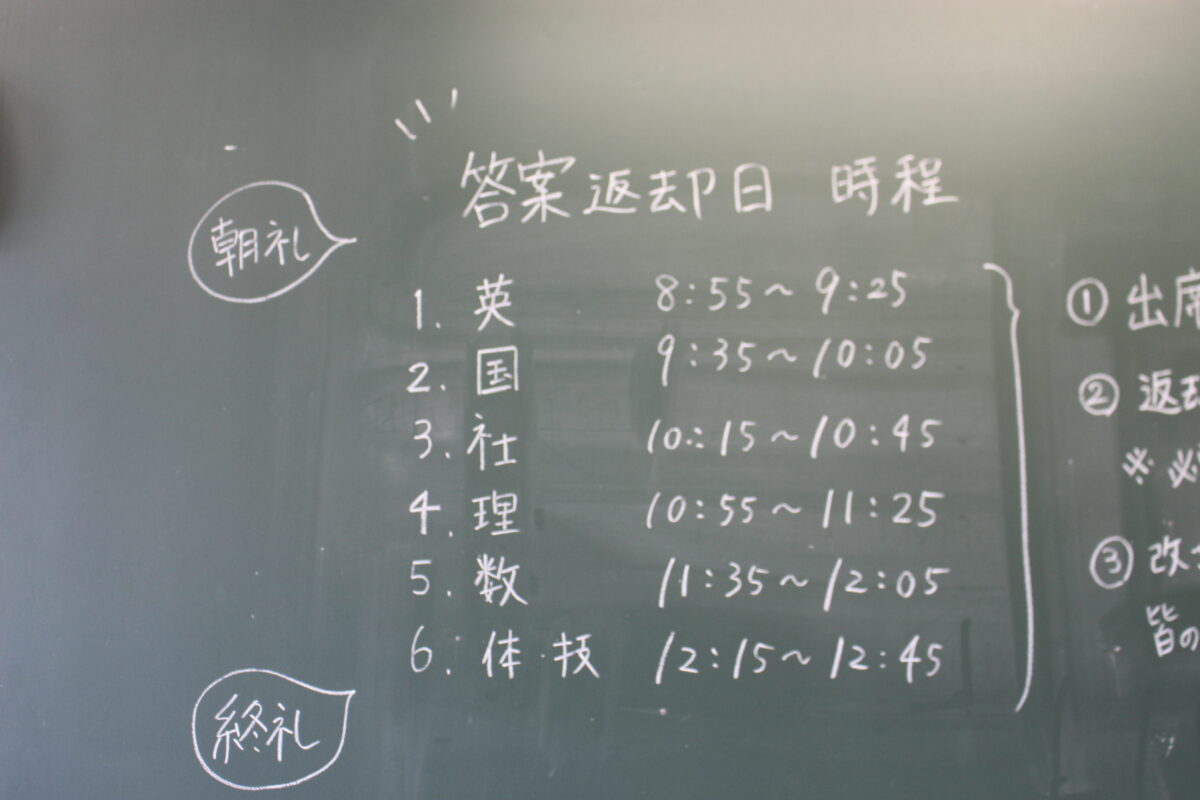 答案返却日 時程
朝礼
1. 英 8:55～9:25
2. 国 9:35～10:05
3. 社 10:15～10:45
4. 理 10:55～11:25
5. 数 11:35～12:05
6. 体・技 12:15～12:45
終礼
① 出席
② 返却
※ 必
③ 改
皆の